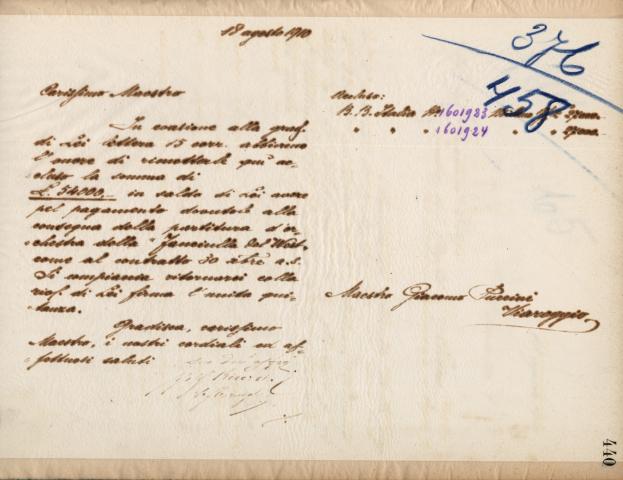 18 agosto 1910
376
458
Carissimo Maestro
In evasione alla grad.
di Lei lettera 15 corr. abbiamo
l'onore di rimetterle qui ac-
cluso la somma di
L. 54000.- in saldo di Lei avere
pel pagamento dovutole alla
consegna della partitura d'or-
chestra della "Fanciulla del West"
come al contratto 30 8bre a.s.
Si compiaccia ritornarci colla
di Lei firma l'unita qui-
tanza.
Gradisca, carissimo
Maestro, i nostri cordiali ed af-
fettuosi saluti
Accluso:
B. B. Italia No. 1601923 27000.-
" " " 1601924 " " 27000.-
Maestro Giacomo Puccini
Viareggio
440